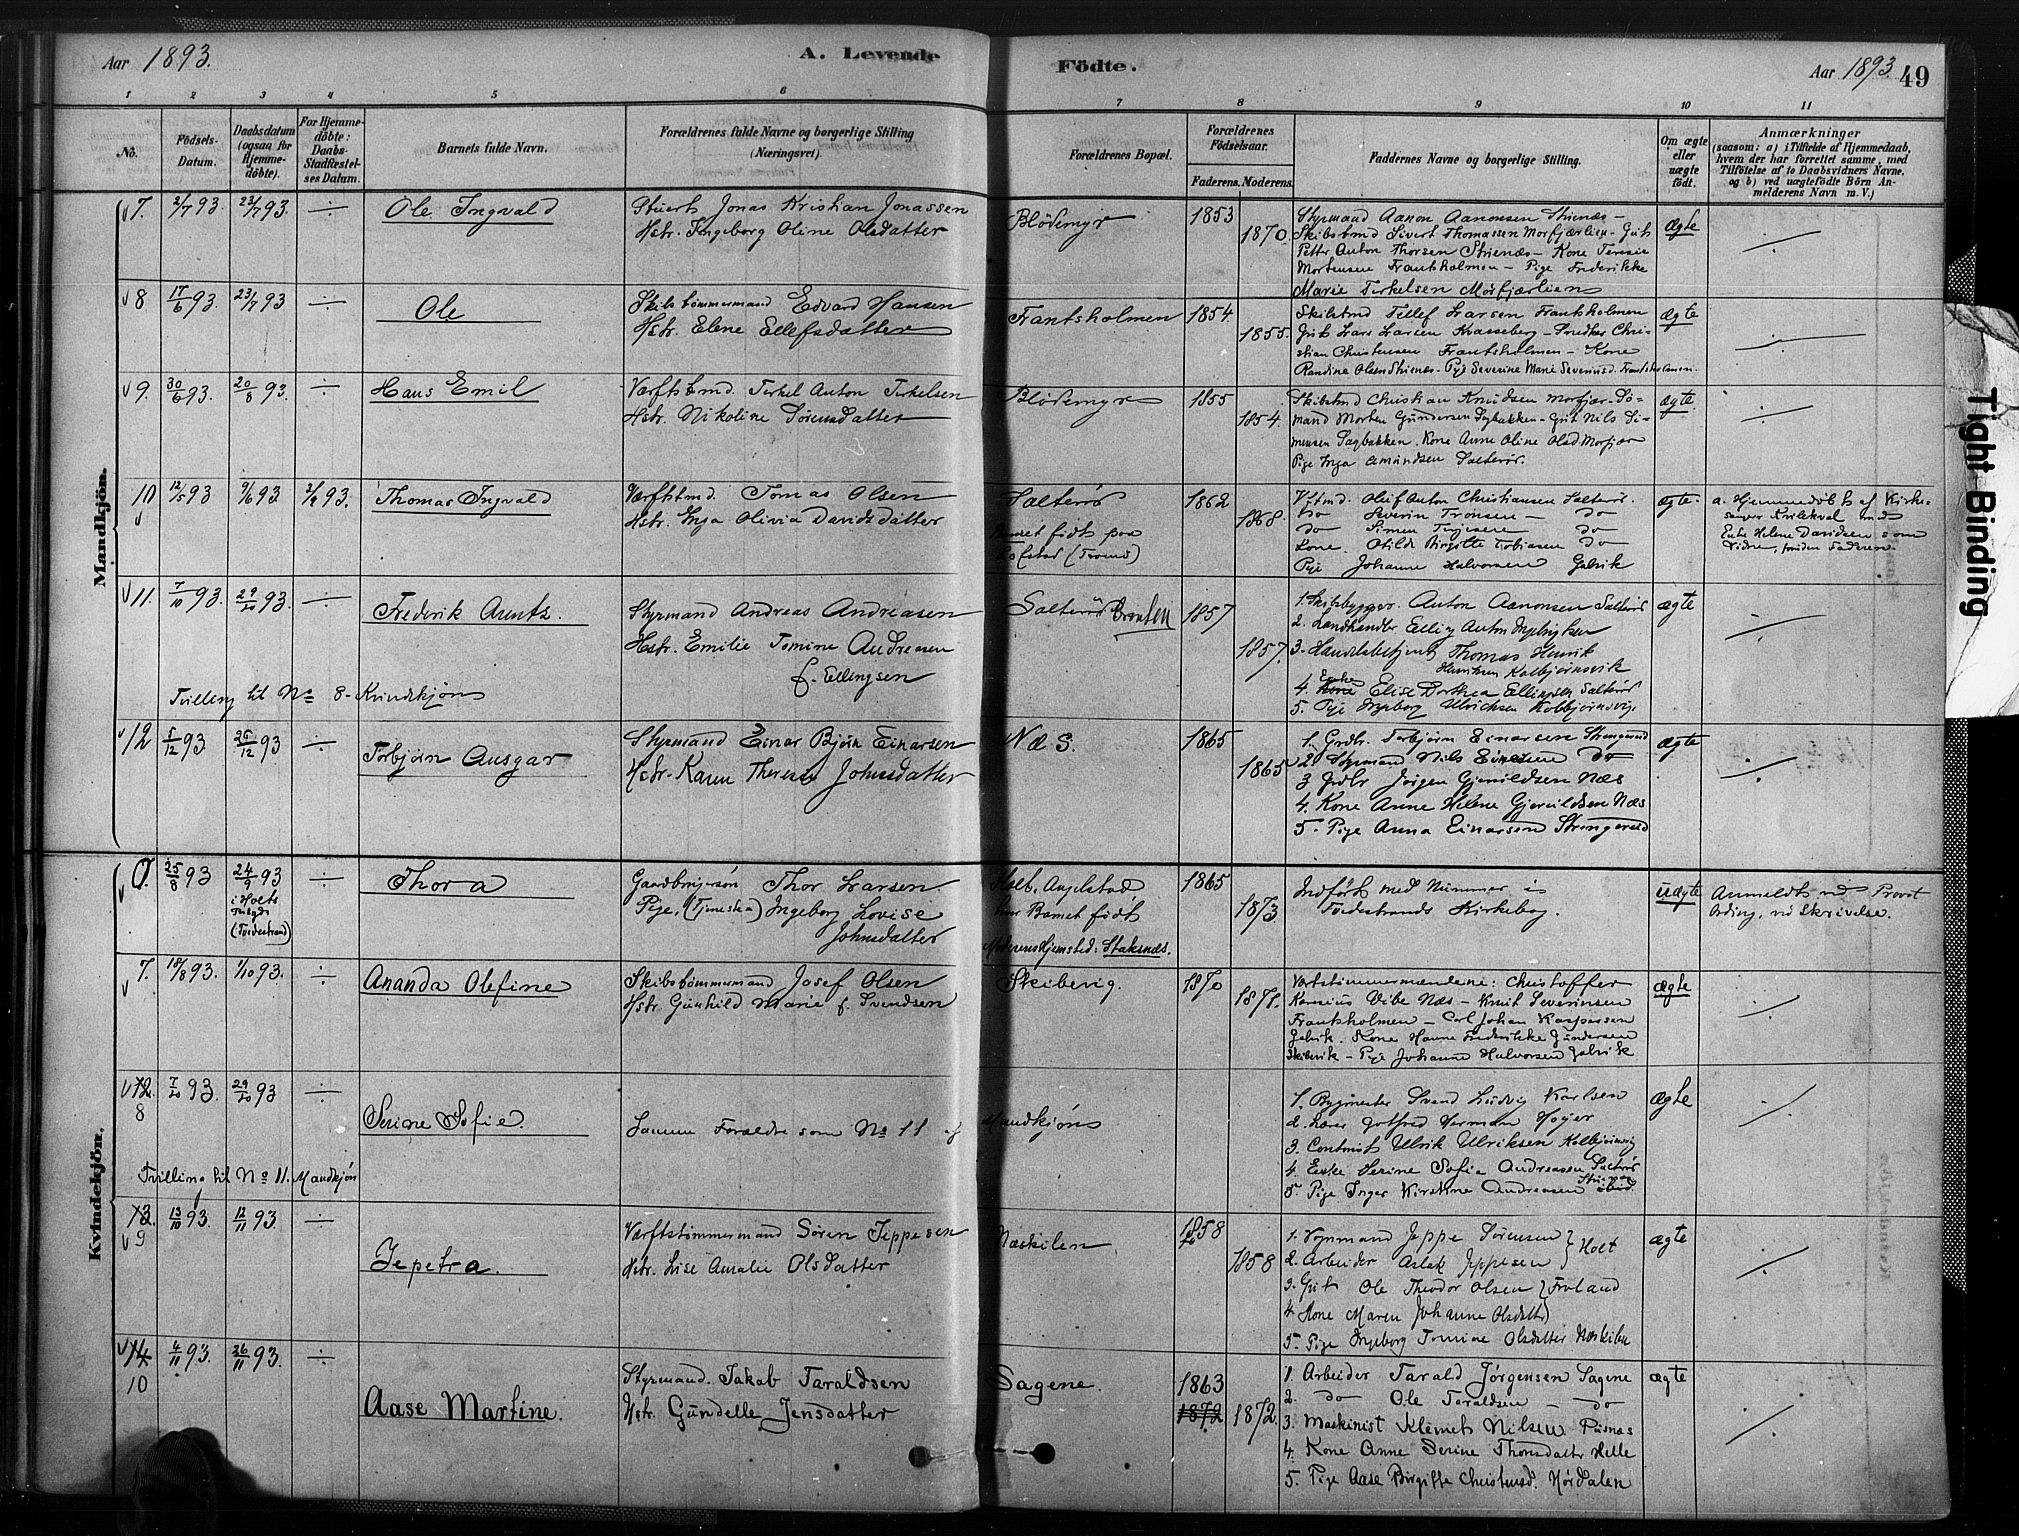 Aar 1893.
A. Levende
Födte.
Aar 1893
49
1 2 3 4 5 6 7 8 9 10 11
No.
Födsels-Datum.
Daabsdatum (ogsaa for Hjemmedöbte).
For Hjemmedöbte: Daabs-Stadfæstelses Datum.
Barnets fulde Navn.
Forældrenes fulde Navne og borgerlige Stilling (Næringsvei).
Forældrenes Bopæl.
Forældrenes Födselsaar.
Faderens. Moderens.
Faddernes Navne og borgerlige Stilling.
Om ægte eller uægte födt.
Anmærkninger
(saasom: a) i Tilfælde af Hjemmedaab,
hvem der har forrettet samme, med
Tilföielse af to Daabsvidners Navne,
og b) ved uægtefödte Börn An-
melderens Navn m. V.)
Mandkjön.
7. 2/7 93. 23/7 93. ÷ Ole Ingvald
Stuert Jonas Kristian Jonassen
Hstr. Ingeborg Oline Olsdatter
Blödemyr 1853 1870
Styrmand Aanon Aanonsen Strienæs –
Skibstmd Sivert Thomassen Morfjærlien – Gut
Petter Anton Thorsen Strienæs – Kone Terese
Mortensen Frantsholmen – Pige Frederikke
Marie Terkelsen Morfjærlien
ægte ÷
8 17/6 93. 23/7 93 ÷ Ole
Skibstømmermand Edvard Hansen
Hstr. Elene Ellefsdatter
Frantsholmen 1854 1855.
Skibstmd Tellef Larsen Frantsholmen
Gut Lars Larsen Krasseberg – Snedker Chri-
stian Christensen Frantsholmen – Kone
Randine Olsen Strienæs – Pige Severine Marie Severinsd. Frantsholmen.
ægte ÷
9. 30/6 93. 20/8 93. ÷ Hans Emil
Værftstmd. Terkel Anton Terkelsen
Hstr. Nikoline Sørensdatter
Blödemyr 1855 1854.
Skibstmd Christian Knudsen Morfjær – Sö-
mand Morten Gundersen Sagbakken – Gut Nils Si-
mensen Sagbakken. Kone Anne Oline Olsd. Morfjær
Pige Inga Amundsen Salterør.
ægte ÷
10 12/5 93 9/6 93 3/9 93. Thomas Ingvald
Værftstmd. Tomas Olsen
Hstr. Inga Olivia Davidsdatter
Salterø
Barnet født paa
Lofstad (Tromø)
1862 1868.
V.tmd. Oluf Anton Christiansen Salterö.
do Severin Tronsen – do
do Simen Terjesen do
Kone. Otilde Birgitte Tobiasen do
Pige Johanne Halvorsen Galvik
ægte.
a. Hjemmedøbt af Kirke-
sanger Kvilekval med
Enke Helene Davidsen som
Vidne, foruden Faderen.
11. 7/10 93. 29/10 93. ÷ Frederik Arnts.
Styrmand Andreas Andreasen
Hstr. Emilie Tomine Andreasen
f. Ellingsen
Salterö Bronten 1857 1857.
1. Skibsbygger. Anton Aanonsen Salterö
2. Landhandler Elling Anton Ingebrigtsen
3. Handelsbetjent Thomas Henrik
Henriksen Kolbjørnsvik
4. Enke Elise Dorthea Ellingsen Salterø
5. Pige Ingeborg Ulrichsen Kolbjørnsvig.
ægte ÷
Tvilling til No 8 – Kvindekjön
12 5/12 93 26/12 93 ÷ Torbjørn Ansgar
Styrmand Einar Bjørn Einarsen
Hstr. Karen Therese Johnsdatter
Næs. 1865 1865
1. Grdbr. Torbjörn Einarsen Strengereid
2. Styrmand Nils Einarsen do
3 Grdbr Jörgen Gjeruldsen Næs
4. Kone Anne Helene Gjeruldsen Næs
5. Pige Anna Einarsen Strengereid
ægte ÷
Kvindekjön.
25/8 93 24/9 93 i Holts (Tvedestrand) Thora
Gaardbrugersøn Thor Larsen
Pige, (Tjeneste) Ingeborg Lovise
Johnsdatter
Holt, Angelstad
hvor Barnet født
Moderens Hjemsted: Staksnæs.
1865 1873
Indført med Nummer i
Tvedestrands Kirkebog.
uægte
Anmeldt ved Provst
Arding, ved Skrivelse.
7. 18/8 93. 1/10 93. ÷ Ananda Olefine
Skibstømmermand Josef Olsen
Hstr. Gunhild Marie f. Svendsen
Skibevig. 1870 1871.
Værftstimmermændene: Christoffer
Kornius Vibe Næs – Knut Severinsen
Frantsholmen – Carl Johan Kaspersen
Galvik. Kone Hanne Frederikke Gundersen
Skibevik – Pige Johanne Halvorsen Galvik
ægte ÷
12. 8 7/10 93. 29/10 93 ÷ Serine Sofie.
Samme Forældre som No 11 af Mandkjön
1. Bygmester Svend Ludvig Karlsen
2. Lærer Gotfred Herman Høyer
3. Contorist Ulrik Ulriksen Kolbjørnsvig
4. Enke Serine Sofia Andreasen Salterö
5. Pige Inger Kirstine Andreasen ibid.
ægte ÷
Tvilling til No 11. Mandkjön
13. 9 13/10 93. 12/11 93. ÷ Jepetra.
Værftstömmermand Sören Jeppesen
Hstr. Lise Amalie Olsdatter
Næskilen 1858 1858
1. Vognmand Jeppe Sørensen } Holt
2. Arbeider Aslak Jeppesen
3. Gut Ole Theodor Olsen } Froland
4. Kone Maren Johanne Olsdatter
5. Pige Ingeborg Tomine Olsdatter Næskilen
ægte ÷
14 10 4/11 93. 26/11 93. ÷ Aase Martine.
Styrmand. Jakob Taraldsen
Hstr. Gundelle Jensdatter
Sagene. 1863 1872 1872.
1. Arbeider Tarald Jørgensen Sagene
2. do Ole Taraldsen – do
3. Maskinist Klemet Nilsen Pusnæs
4. Kone Anne Serine Thomsdatter Helle
5. Pige Aase Birgitte Christensd. Hördalen
ægte ÷
Tight Binding